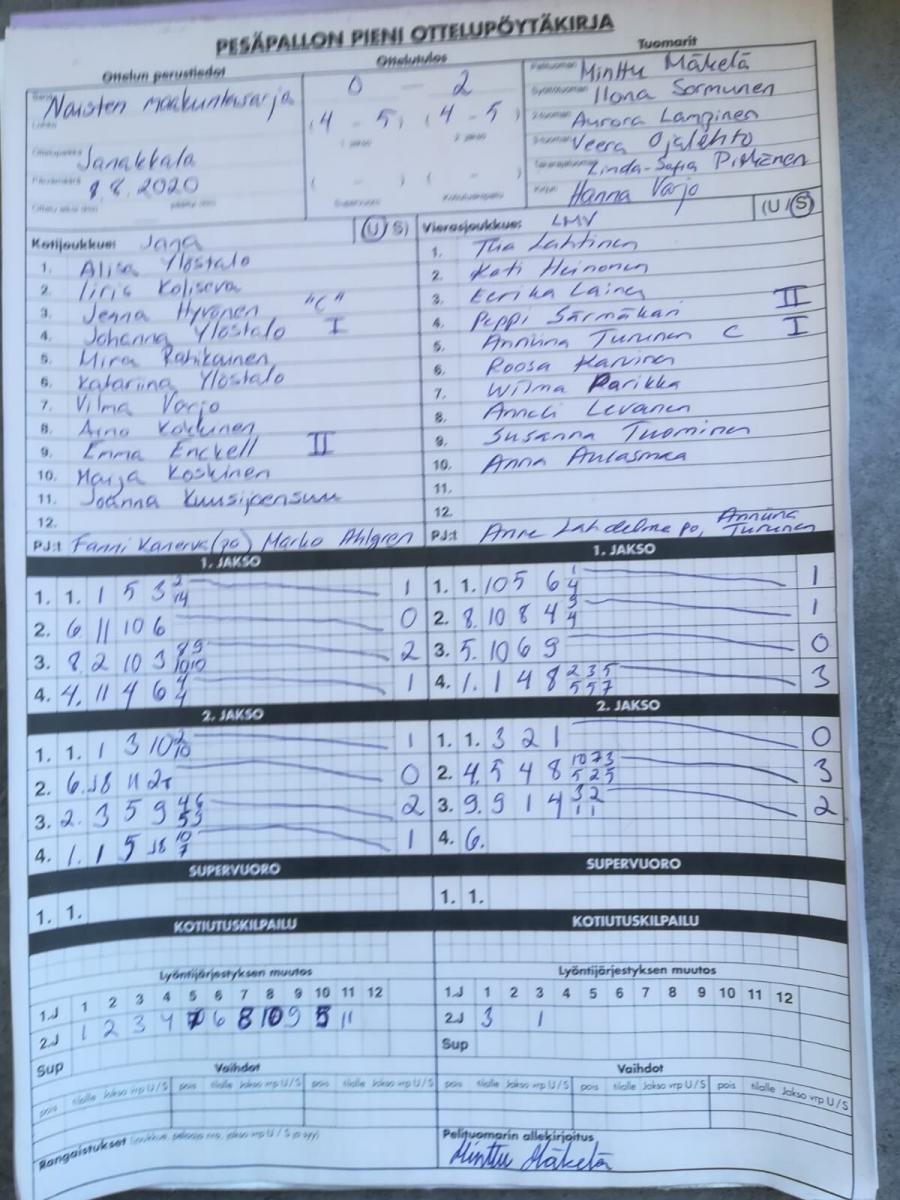 PESÄPALLON PIENI OTTELUPÖYTÄKIRJA
Ottelun perustiedot
Naisten maakuntasarja
Janakkala
8.8.2020
Ottelutulos
0 - 2
(4 - 5) (4 - 5)
1. jakso 2. jakso
( - ) ( - )
Supervuoro Kotiutuskilpailu
Tuomarit
Minttu Mäkelä
Ilona Sormunen
Aurora Lampinen
Veera Ojalehto
Linda-Sofia Pitkänen
Hanna Varjo
Kotijoukkue: Jana (U/S)
1. Alisa Ylöstalo
2. Iiris Koliseva
3. Jenna Hyvönen "C"
4. Johanna Ylöstalo I
5. Mira Pahikainen
6. Katariina Ylöstalo
7. Vilma Varjo
8. Aino Kokkinen
9. Emma Enckell II
10. Marja Koskinen
11. Joanna Kuusijoensuu
12.
PJ:t Fanni Kanerva (po) Marko Ahlgren
Vierasjoukkue: LMV (U/S)
1. Tua Lahtinen
2. Kati Heinonen
3. Eerika Laine
4. Peppi Särmäkari II
5. Anniina Turunen C I
6. Roosa Karvinen
7. Wilma Parikka
8. Anneli Levanen
9. Susanna Tuominen
10. Anna Aulasmaa
11.
12.
PJ:t Anne Lahdelma po, Anniina Turunen
1. JAKSO
1. 1. 1 5 3 2/14 1
2. 6 11 10 6 0
3. 8 2 10 3 8 9/10 10 2
4. 4. 11 4 6 4/4 1
1. JAKSO
1. 1. 10 5 6 1/4 1
2. 8. 10 8 4 3/4 1
3. 5. 10 6 9 0
4. 1. 1 4 8 2 3 5/5 5 7 3
2. JAKSO
1. 1. 1 3 10 2/10 1
2. 6. 8 11 2 0
3. 2. 3 5 9 4 6/5 3 2
4. 1. 1 5 8 10/7 1
2. JAKSO
1. 1. 3 2 1 0
2. 4. 5 4 8 10 7 3/5 2 5 3
3. 9. 9 1 4 3 2/1 1 2
4. 6.
SUPERVUORO
1. 1.
SUPERVUORO
1. 1.
KOTIUTUSKILPAILU
KOTIUTUSKILPAILU
Lyöntijärjestyksen muutos
1.J 1 2 3 4 5 6 7 8 9 10 11 12
2.J 1 2 3 4 7 6 8 10 9 5 11
Sup
Lyöntijärjestyksen muutos
1.J 1 2 3 4 5 6 7 8 9 10 11 12
2.J 3 1
Sup
Vaihdot
pois tilalle Jakso vrp U/S pois tilalle Jakso vrp U/S pois tilalle Jakso vrp U/S
Vaihdot
pois tilalle Jakso vrp U/S pois tilalle Jakso vrp U/S pois tilalle Jakso vrp U/S
Rangaistukset
Pelituomarin allekirjoitus
Minttu Mäkelä